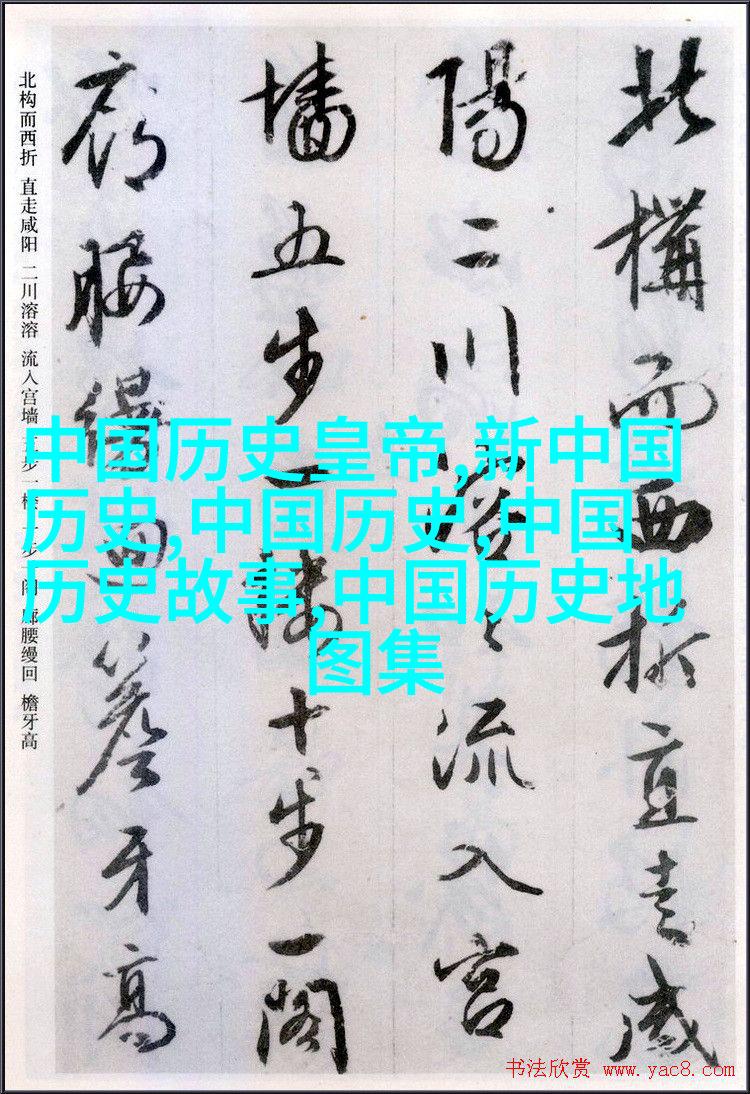 北構而西折直走咸
陽二川溶々流入宮
墻五步一樓十步一閣
廊腰縵回簷牙高
北构而西折 直走咸阳 二川溶溶 流入宫墙 五步一楼 十步一阁 廊腰缦回 檐牙高
中国历史皇帝,新中国
历史,中国历史,中国
历史故事,中国历史地
图集
书法欣赏 www.yac8.com